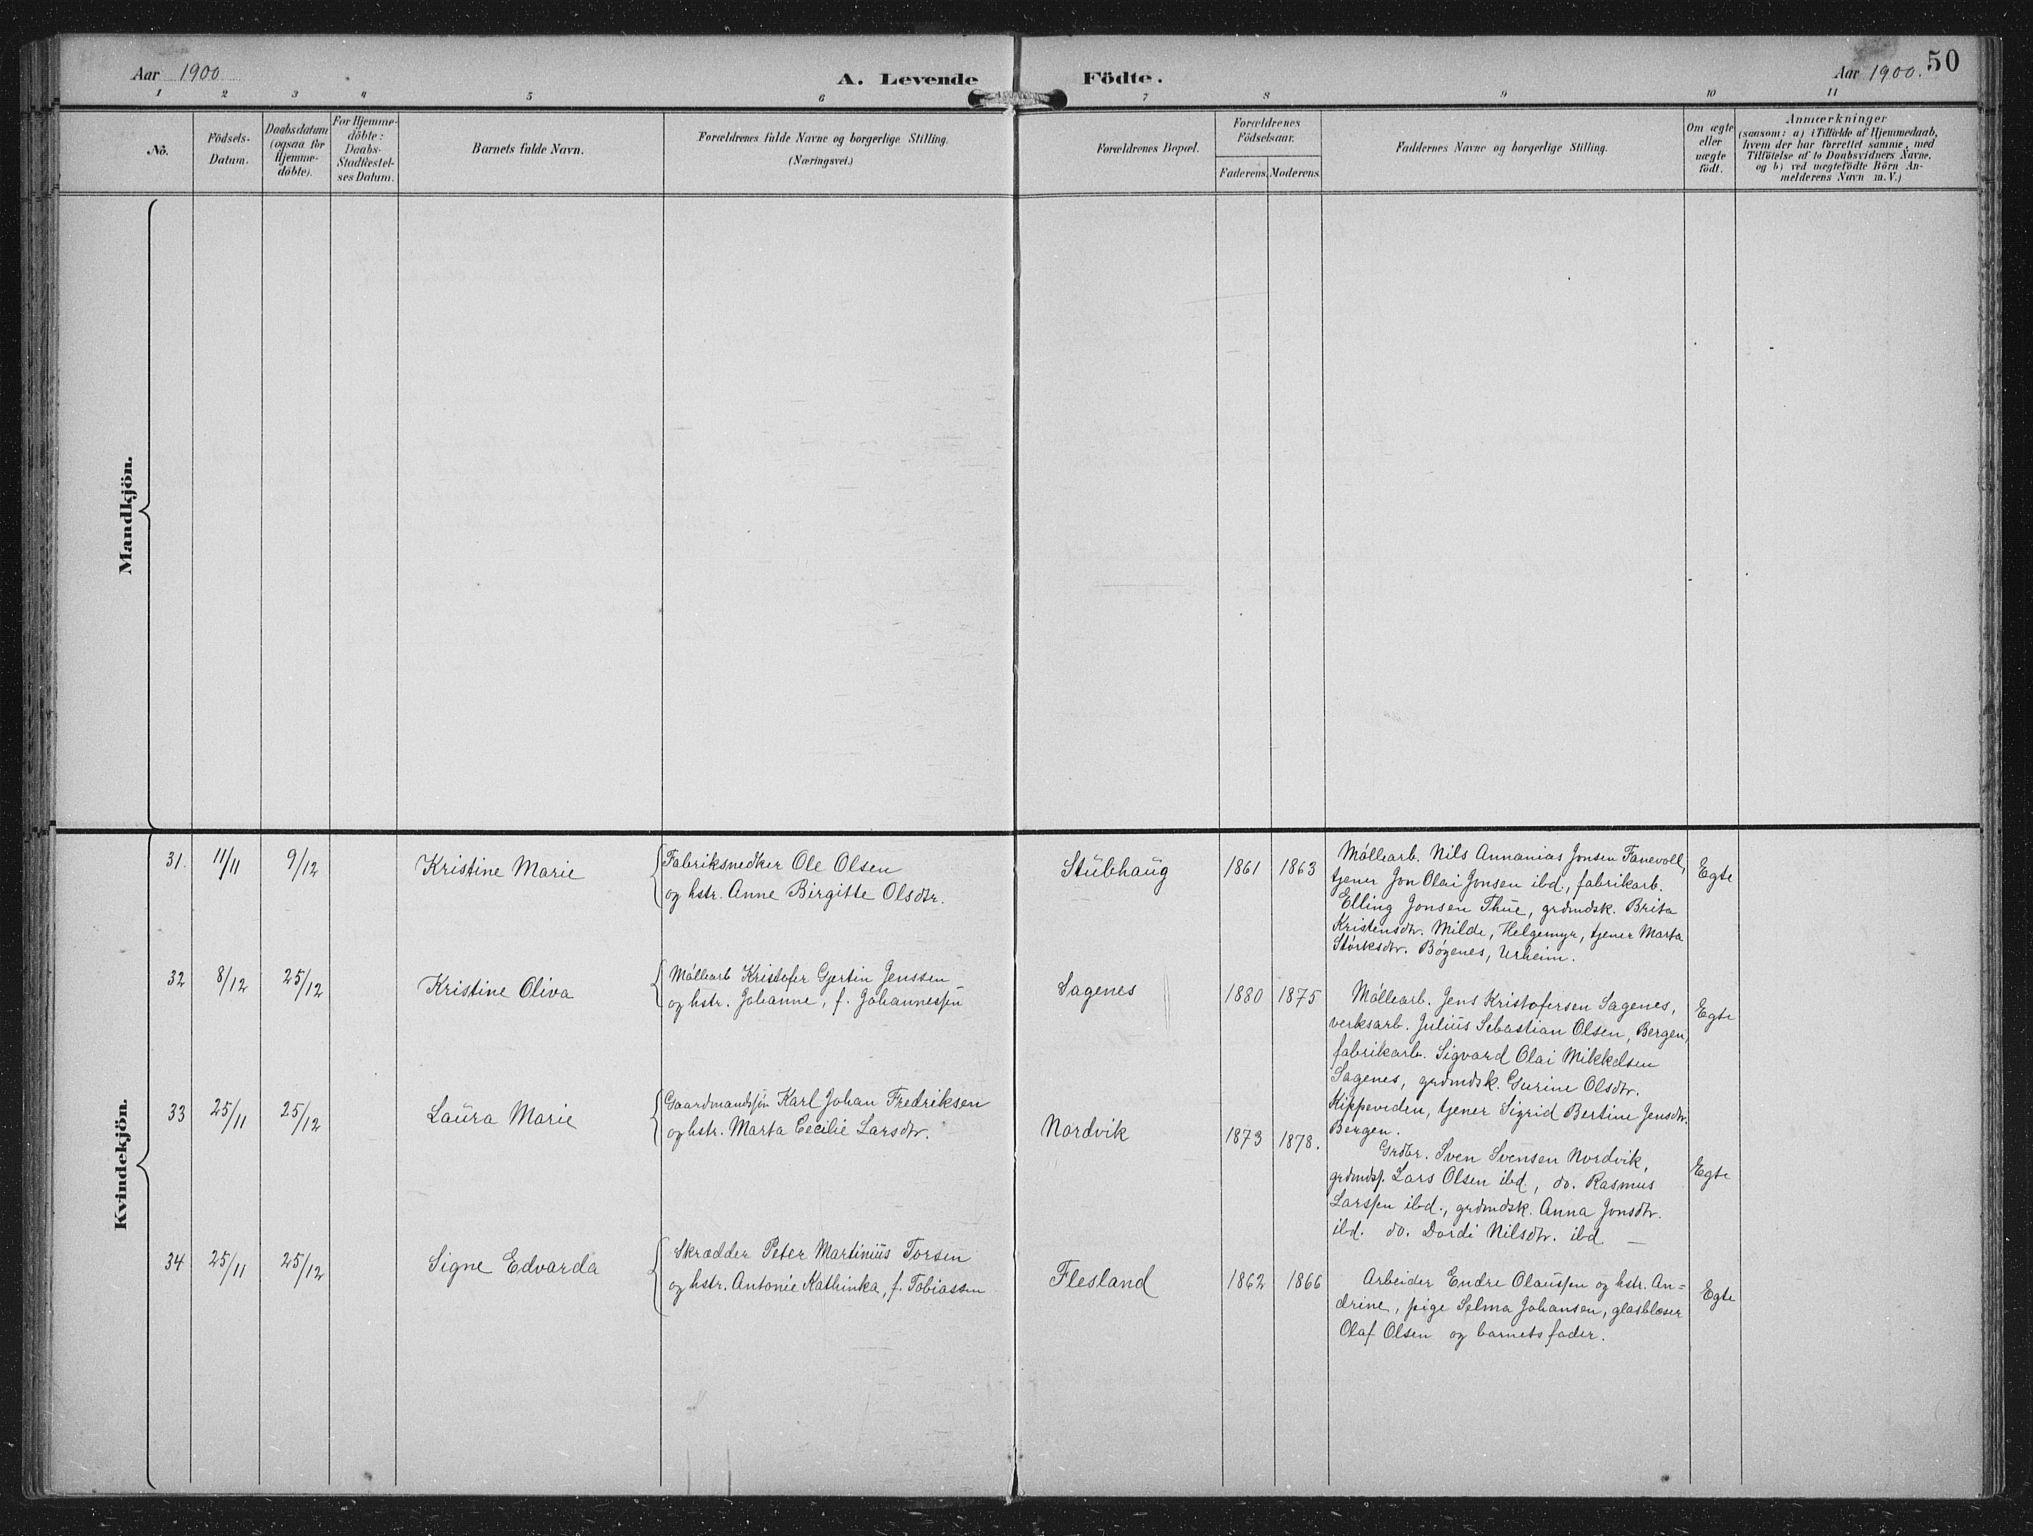 Aar 1900
A. Levende Födte.
Aar 1900.
50
1 2 3 4 5 6 7 8 9 10 11
No.
Födsels-
Datum.
Daabsdatum
(ogsaa for
Hjemme-
döbte).
For Hjemme-
döbte:
Daabs-
Stadfæstel-
ses Datum.
Barnets fulde Navn.
Forældrenes fulde Navne og borgerlige Stilling.
(Næringsvei.)
Forældrenes Bopæl.
Forældrenes
Födselsaar.
Faderens. Moderens.
Faddernes Navne og borgerlige Stilling.
Om ægte
eller
uægte
födt.
Anmærkninger
(saasom: a) i Tilfælde af Hjemmedaab,
hvem der har forrettet samme, med
Tilföielse af to Daabsvidners Navne,
og b) ved uægtefödte Börn An-
melderens Navn m. V.)
Mandkjön.
Kvindekjön.
31. 11/11 9/12 Kristine Marie
Fabriksnedker Ole Olsen
og hstr. Anne Birgitte Olsdtr.
Stubhaug 1861 1863
Møllearb. Nils Annanias Jonsen Fanevoll,
tjener Jon Olai Jonsen ibd., fabrikarb.
Elling Jonsen Thue, grdmdsk. Brita
Kristensdtr. Milde, Helgemyr, tjener Marta
Størksdtr. Bøgenes, Urheim.
Egte
32 8/12 25/12 Kristine Oliva
Møllearb Kristofer Gjertin Jenssen
og hstr. Johanne, f. Johannessen
Sagenes 1880 1875
Møllearb. Jens Kristofersen Sagenes,
verksarb. Julius Sebastian Olsen, Bergen,
fabrikarb. Sigvard Olai Mikkelsen
Sagenes, grdmdsk. Gurine Olsdtr.
Kippeviden, tjener Sigrid Bertine Jensdtr.
Bergen.
Egte
33 25/11 25/12 Laura Marie
Gaardmandssøn Karl Johan Fredriksen
og hstr. Marta Cecilie Larsdtr.
Nordvik 1873 1878.
Grdbr. Sven Svensen Nordvik,
grdmds. Lars Olsen ibd., do. Rasmus
Larssen ibd., grdmdsk. Anna Jonsdtr.
ibd. do. Dordi Nilsdtr. ibd —
Egte
34 25/11 25/12 Signe Edvarda
Skrædder Peter Martinius Torsen
og hstr. Antonie Kathinka, f. Tobiassen
Flesland 1862 1866
Arbeider Endre Olaussen og hstr. An=
drine, pige Selma Johansen, glasblæser
Olaf Olsen og barnets fader.
Egte